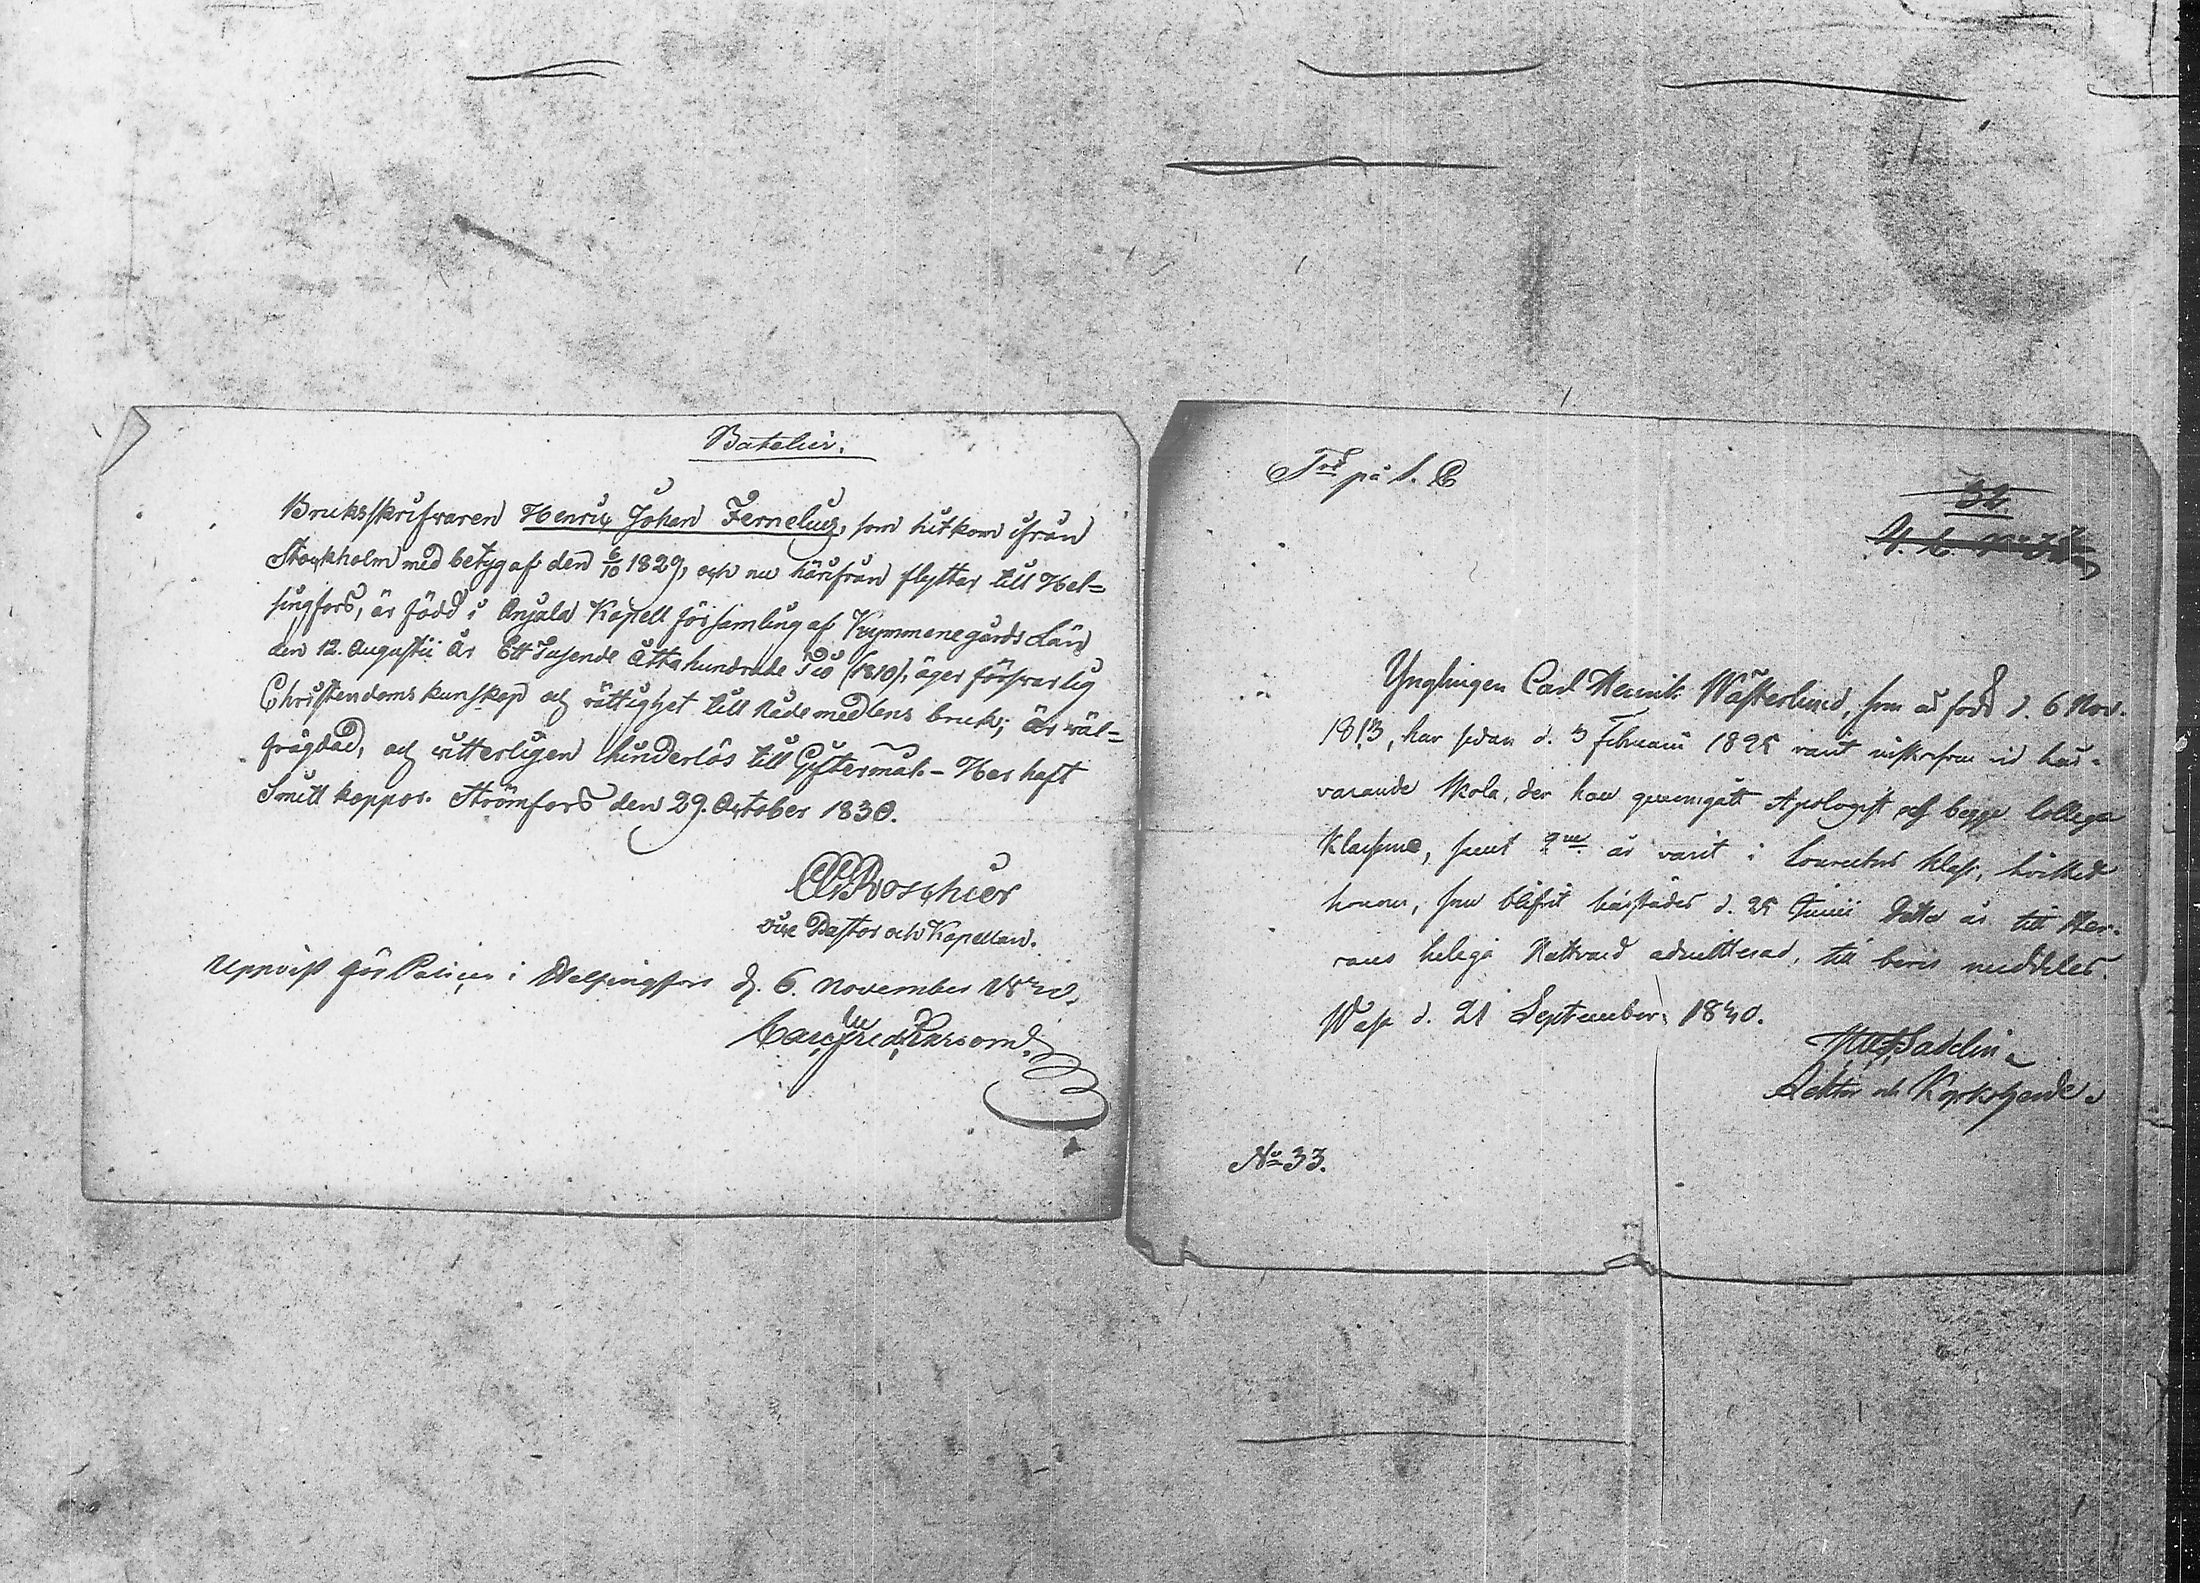 Bruksskrifvaren Henric Johan Fernelius, som hitkom ifrån
Stockholm med betyg af den 6/10 1829, och nu härifrån flyttar till Hel=
singfors, är född i Anjala Kapell församling af Kymmenegårds Län
den 12. Augustii år Ett Tusende Åttahundrade Tio (1810), äger försvarlig
Christendoms kunskap och rättighet till Nådemedlens bruk; är väl=
frägdad, och witterligen hinderlös till Gyftermål. - Har haft
Smitt koppor. Strömfors den 29. October 1830.
Roschier
vice Pastor och Kapellan.
Uppvist för Policen i Helsingfors d. 6. November 1830.
på 1. C
32.
Ynglingen Carl Henrik Wästerlund, som är född d. 6 Nov.
1813, har sedan d. 3 Februarii 1825 varit inskrefven vid här-
varande Skola, der han genomgått Apologist och begge Collega
Klasserne, samt 2ne år varit i Conrectors Klass, hvilket
honom, som blifvit härstädes d. 25 Junii detta år till Her-
rans heliga Nattvard admitterad, till bevis meddelas.
Wasa d. 21 September 1830.
Rektor och Kyrkoherde.
No 33.